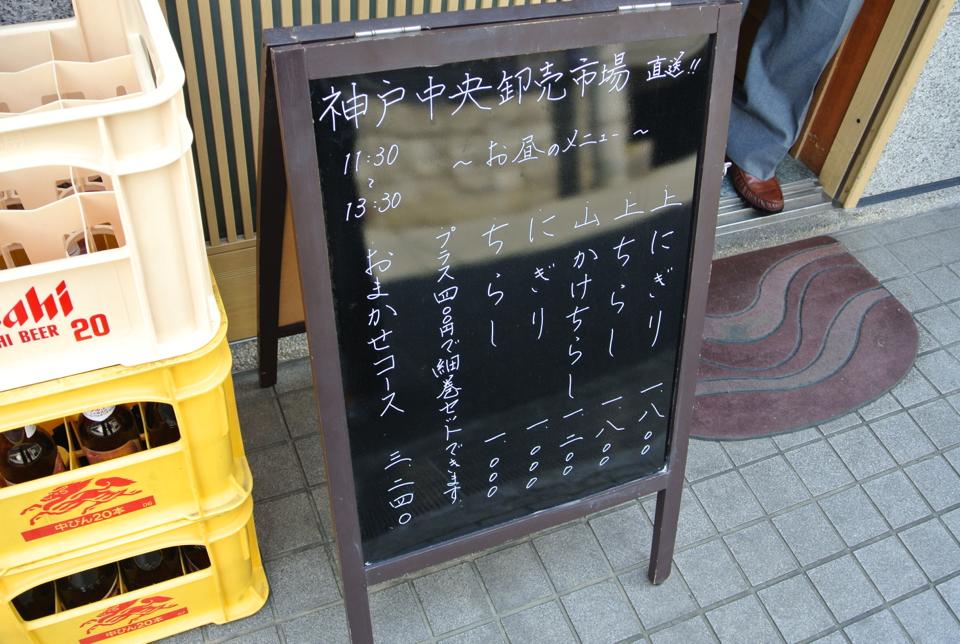 神戸中央卸売市場 直送!!
11:30
〜
13:30
〜お昼のメニュー〜
上にぎり 一、八〇〇
上ちらし 一、八〇〇
山かけちらし 一、二〇〇
にぎり 一、〇〇〇
ちらし 一、〇〇〇
プラス四〇円で細巻セットできます
おまかせコース 三、二四〇
ahi
HI BEER 20
中びん20本
中びん20本